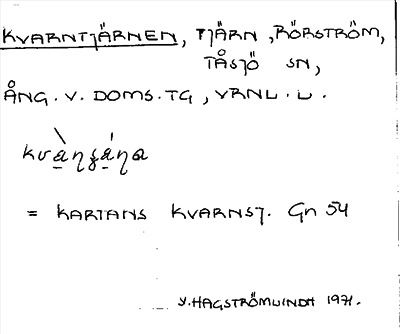 KVARNTJÄRNEN, TJÄRN, RÖRSTRÖM,
TÅSJÖ SN,
ÅNG. V. DOMS. TG, VRNL. L.
= KARTANS KVARNSJ. Gn 54
HAGSTRÖMLINDH 1971.